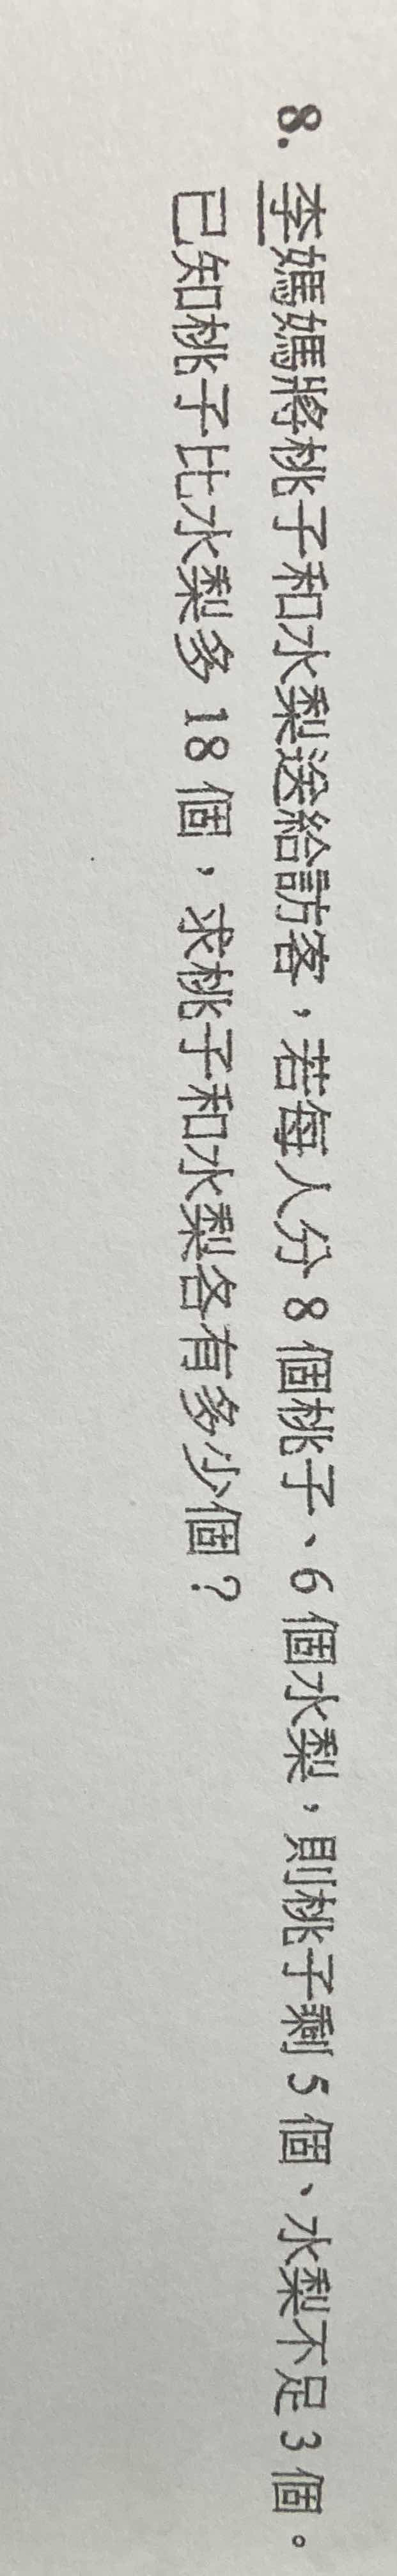 8. 李媽媽將桃子和水梨送給訪客，若每人分 8 個桃子、6 個水梨，則桃子剩 5 個、水梨不足 3 個。
已知桃子比水梨多 18 個，求桃子和水梨各有多少個？